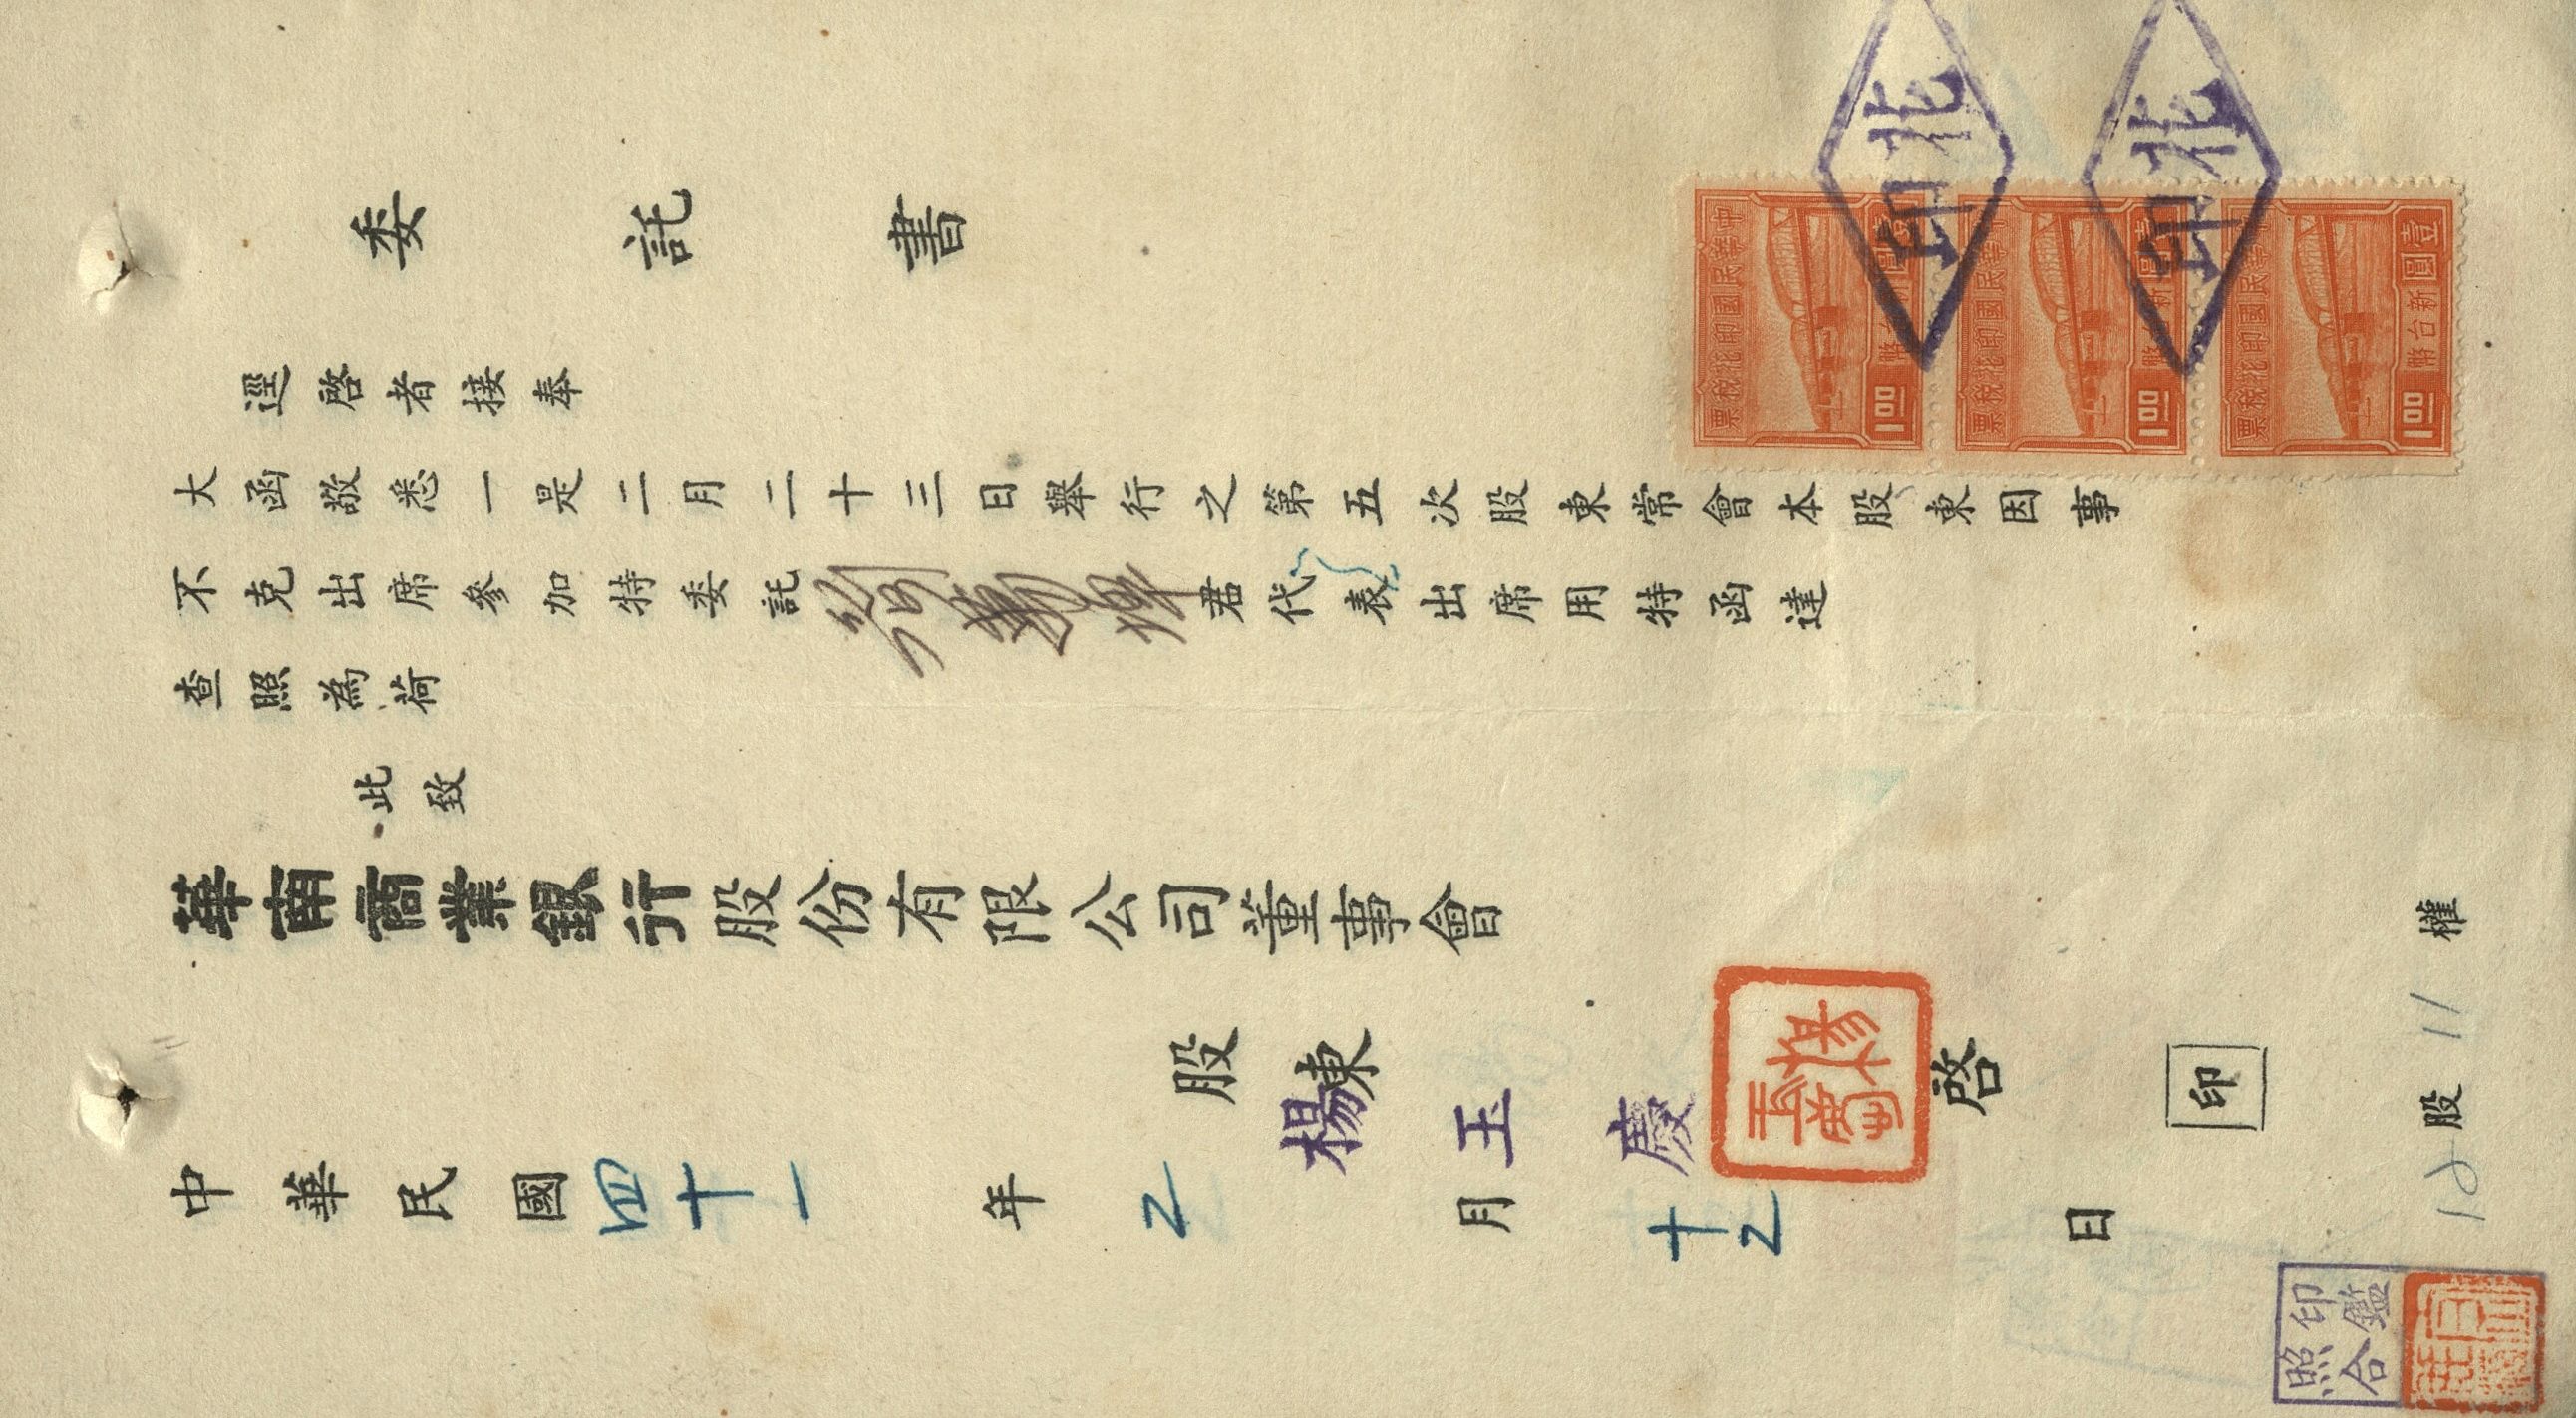 委託書
逕啓者接奉
大函敬悉一是二月二十三日舉行之第五次股東常會本股東因事
不克出席參加特委託 君代表出席用特函達
查照為荷
此致
華南商業銀行股份有限公司董事會
股東 楊玉慶 啓 印
中華民國四十一年2月十2日
12股 11權
中華民國印花稅票
壹圓新台幣
1.00
中華民國印花稅票
壹圓新台幣
1.00
中華民國印花稅票
壹圓新台幣
1.00
北印
北印
楊玉慶
印鑑
照合